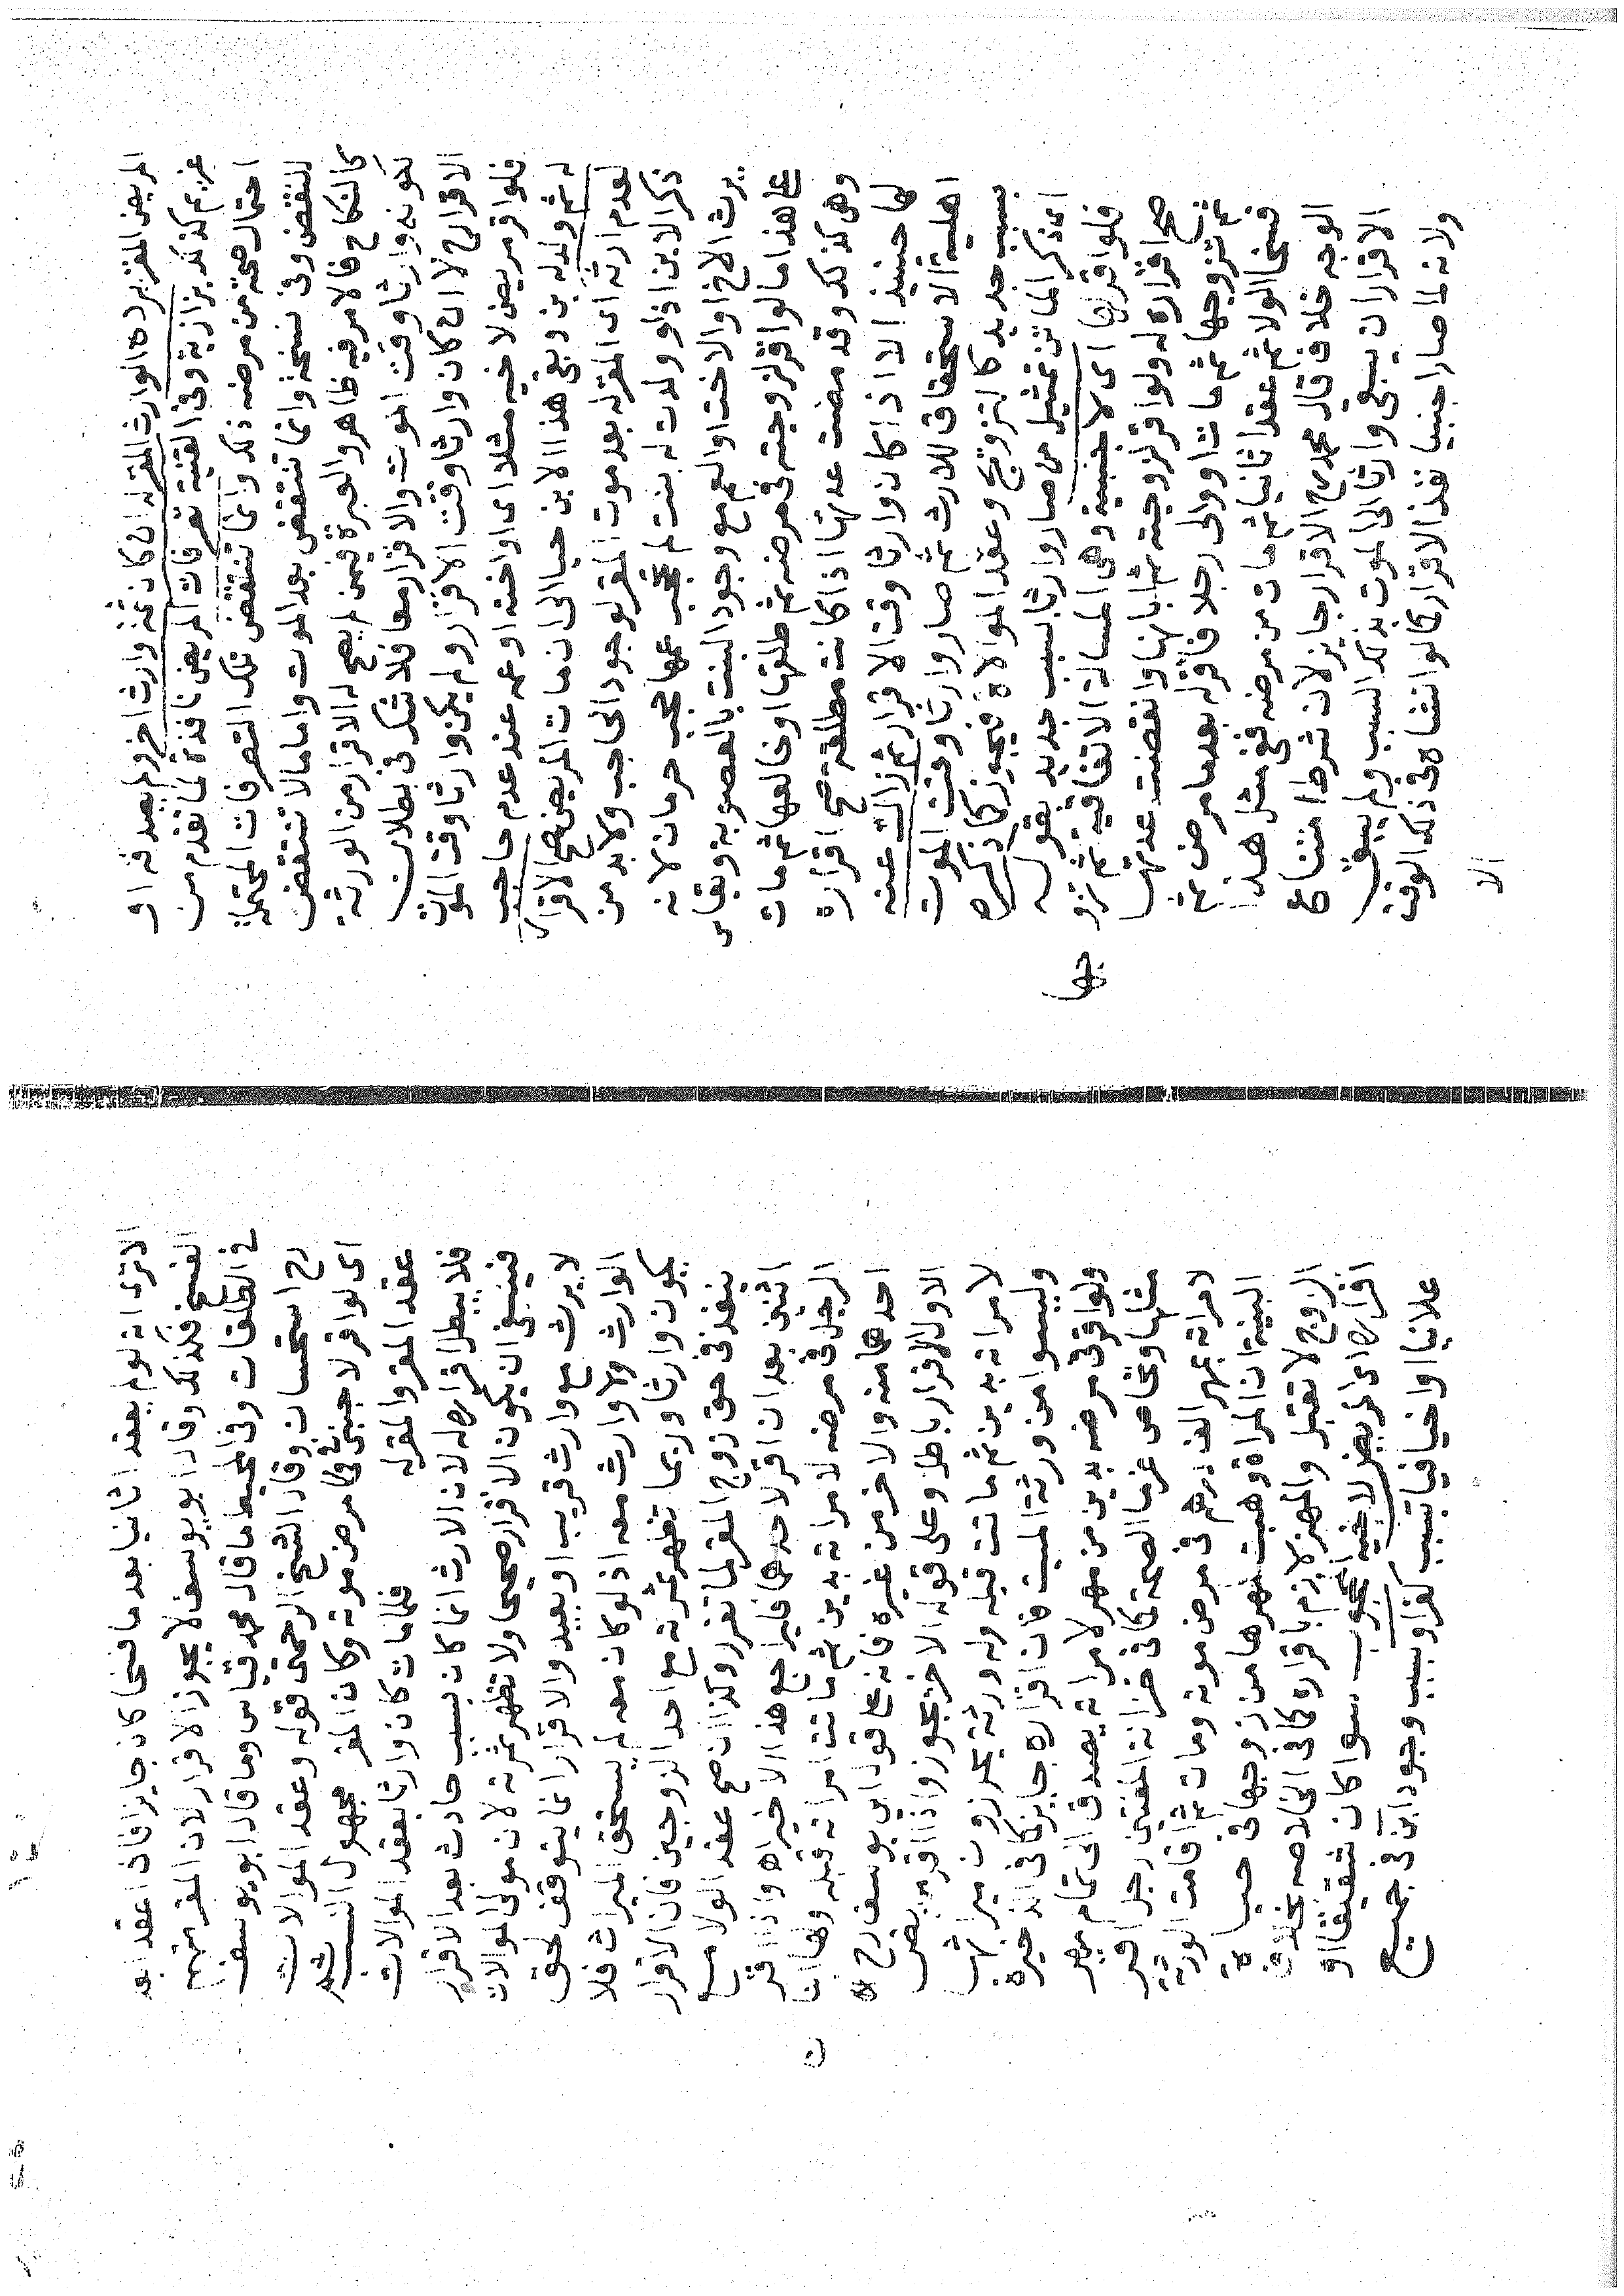 المريض المقر برده الوارث المقر له ان كان ثمة وارث اخر ولم يصدقه او
غريم كذلك بزازية وفى القنية تصرفات المريض نافذة لما تقدم من
احتمال صحته من مرضه ذلك وانما تنتقض تلك التصرفات المحتملة
للنقض وفى نسخة وانما تنتقض بعد الموت واما مالا تنتقض
كالنكاح فالامر فيه ظاهر والعبرة فيمن لم يصح له الاقرار من الورثة
لكونه وارثا وقت الموت والاقرار معا فلا شك فى بطلان
الاقرار ح لا ان كان وارثا وقت الاقرار ولم يكن وارثا وقت الموت
فلو اقر مريض لاخيه مثلا اى او اخته او عمه عند عدم حاجب
له ثم ولد له بن وبقى هذا الابن حيا الى ان مات المريض صح الاقرار
لعدم ارثه اى المقر له بعد موت المقر لوجود الحاجب ولا بد من
ذكر الابن اذ لو ولدت له بنت لم تحجب عمها حجب حرمان لانه
يرث الاخ او الاخت او العم مع وجود البنت بالعصوبة وبقاء
على هذا ما لو اقر لزوجته فى مرضه ثم طلقها او خالعها ثم مات
وهى كذلك وقد مضت عدتها اذا كانت مطلقة صح اقراره
لها حينئذ الا اذا كان وارثا وقت الاقرار ثم زالت عنه
اهلية الاستحقاق للارث ثم صار وارثا وقت الموت
بسبب جديد كالتزويج وعقد الموالاة فيجوز كما ذكره
اى ذكر الماتن تمثيل من صار وارثا بسبب جديد بقوله
فلو اقر لها اى لاجنبية وهى المسالة الاتفاقية ثم تزوجها
صح اقراره له ولو اقر لزوجته ثم ابانها وانقضت عدتها
ثم تزوجها ثم مات او والى رجلا فاقر له بعدما مرض ثم
فسخا الولا ثم عقدا ثانيا ثم مات من مرضه ففى مثل هذا
الوجه خلاف قال محمد رح الاقرار جايز لان شرط امتناع
الاقرار ان يبقى وارثا الى الموت بذلك السبب ولم يبق
ولانه لما صار اجنبيا نفذ الاقرار كما لو انشاه فى ذلك الوقت
الا
الا ترى انه لو لم يعقد اثانيا بعد ما فسخا كان جايزا فاذا عقد ابعد
الفسخ فكذلك وقال ابو يوسف لا يجوز الاقرار لان المقر متهم
فى الطلقات وفى المحيط ما قال محمد قياس وما قال ابو يوسف
رح استحسان وقال الشيخ الرحمتى قوله وعقد الموالات
اى لو اقر لاجنبى فى مرض موته وكان المقر مجهول النسب ثم
عقد المقر والمقر له فلما مات كان وارثا بعقد الموالات
فلا يبطل اقراره له لان الارث انما كان بسبب حادث بعد الاقرار
فينبغى ان يكون الاقرار صحيحا ولا تظهر ثمرته لان مولى الموالات
لا يرث مع وارث قريب او بعيد والاقرار انما يتوقف لحق
الوارث ولا وارث معه اذ لو كان معه لم يستحق الميراث فلا
يكون وارثا وربما تظهر ثمرته مع احد الزوجين فان الاقرار
ينفذ فى حق زوج المقر لما تقرر وكذا ان صح عقد الولا مع
اثنين بعد ان اقر لاحدهما فليراجع هذا الاخيراه واذا اقر
الرجل فى مرضه لامراته بدين ثم ماتت امراته قبله ولها ابنان
احدهما منه والاخر من غيره فانه على قول ابى يوسف رح
الاول الاقرار باطل وعلى قوله الاخر يجوز واذا اقر المريض
لامراته بدين ثم ماتت قبله وله ورثة يحرزون ميراثها
وليسوا من ورثة الميت فان اقراره جايز كما فى الذخيرة
ولو اقر فى مرضه بدين من مهر لامراته يصدق الى تمام مهر
مثلها وتحاص غرما الصحة كما فى خزانة المفتين رجل اقر
لامراته بمهر الف درهم فى مرض موته ومات ثم اقامت الورثة
البينة ان المراة وهبت مهرها من زوجها فى حياة
الزوج لا تقبل والمهر لازم باقراره كما فى الخلاصه بخلاف
اقراره اى المريض لاخيه المحجوب سوا كان شقيقا او
علانيا او اخيافيا تبسبب كفر او بسبب وجود ابن فى جميع